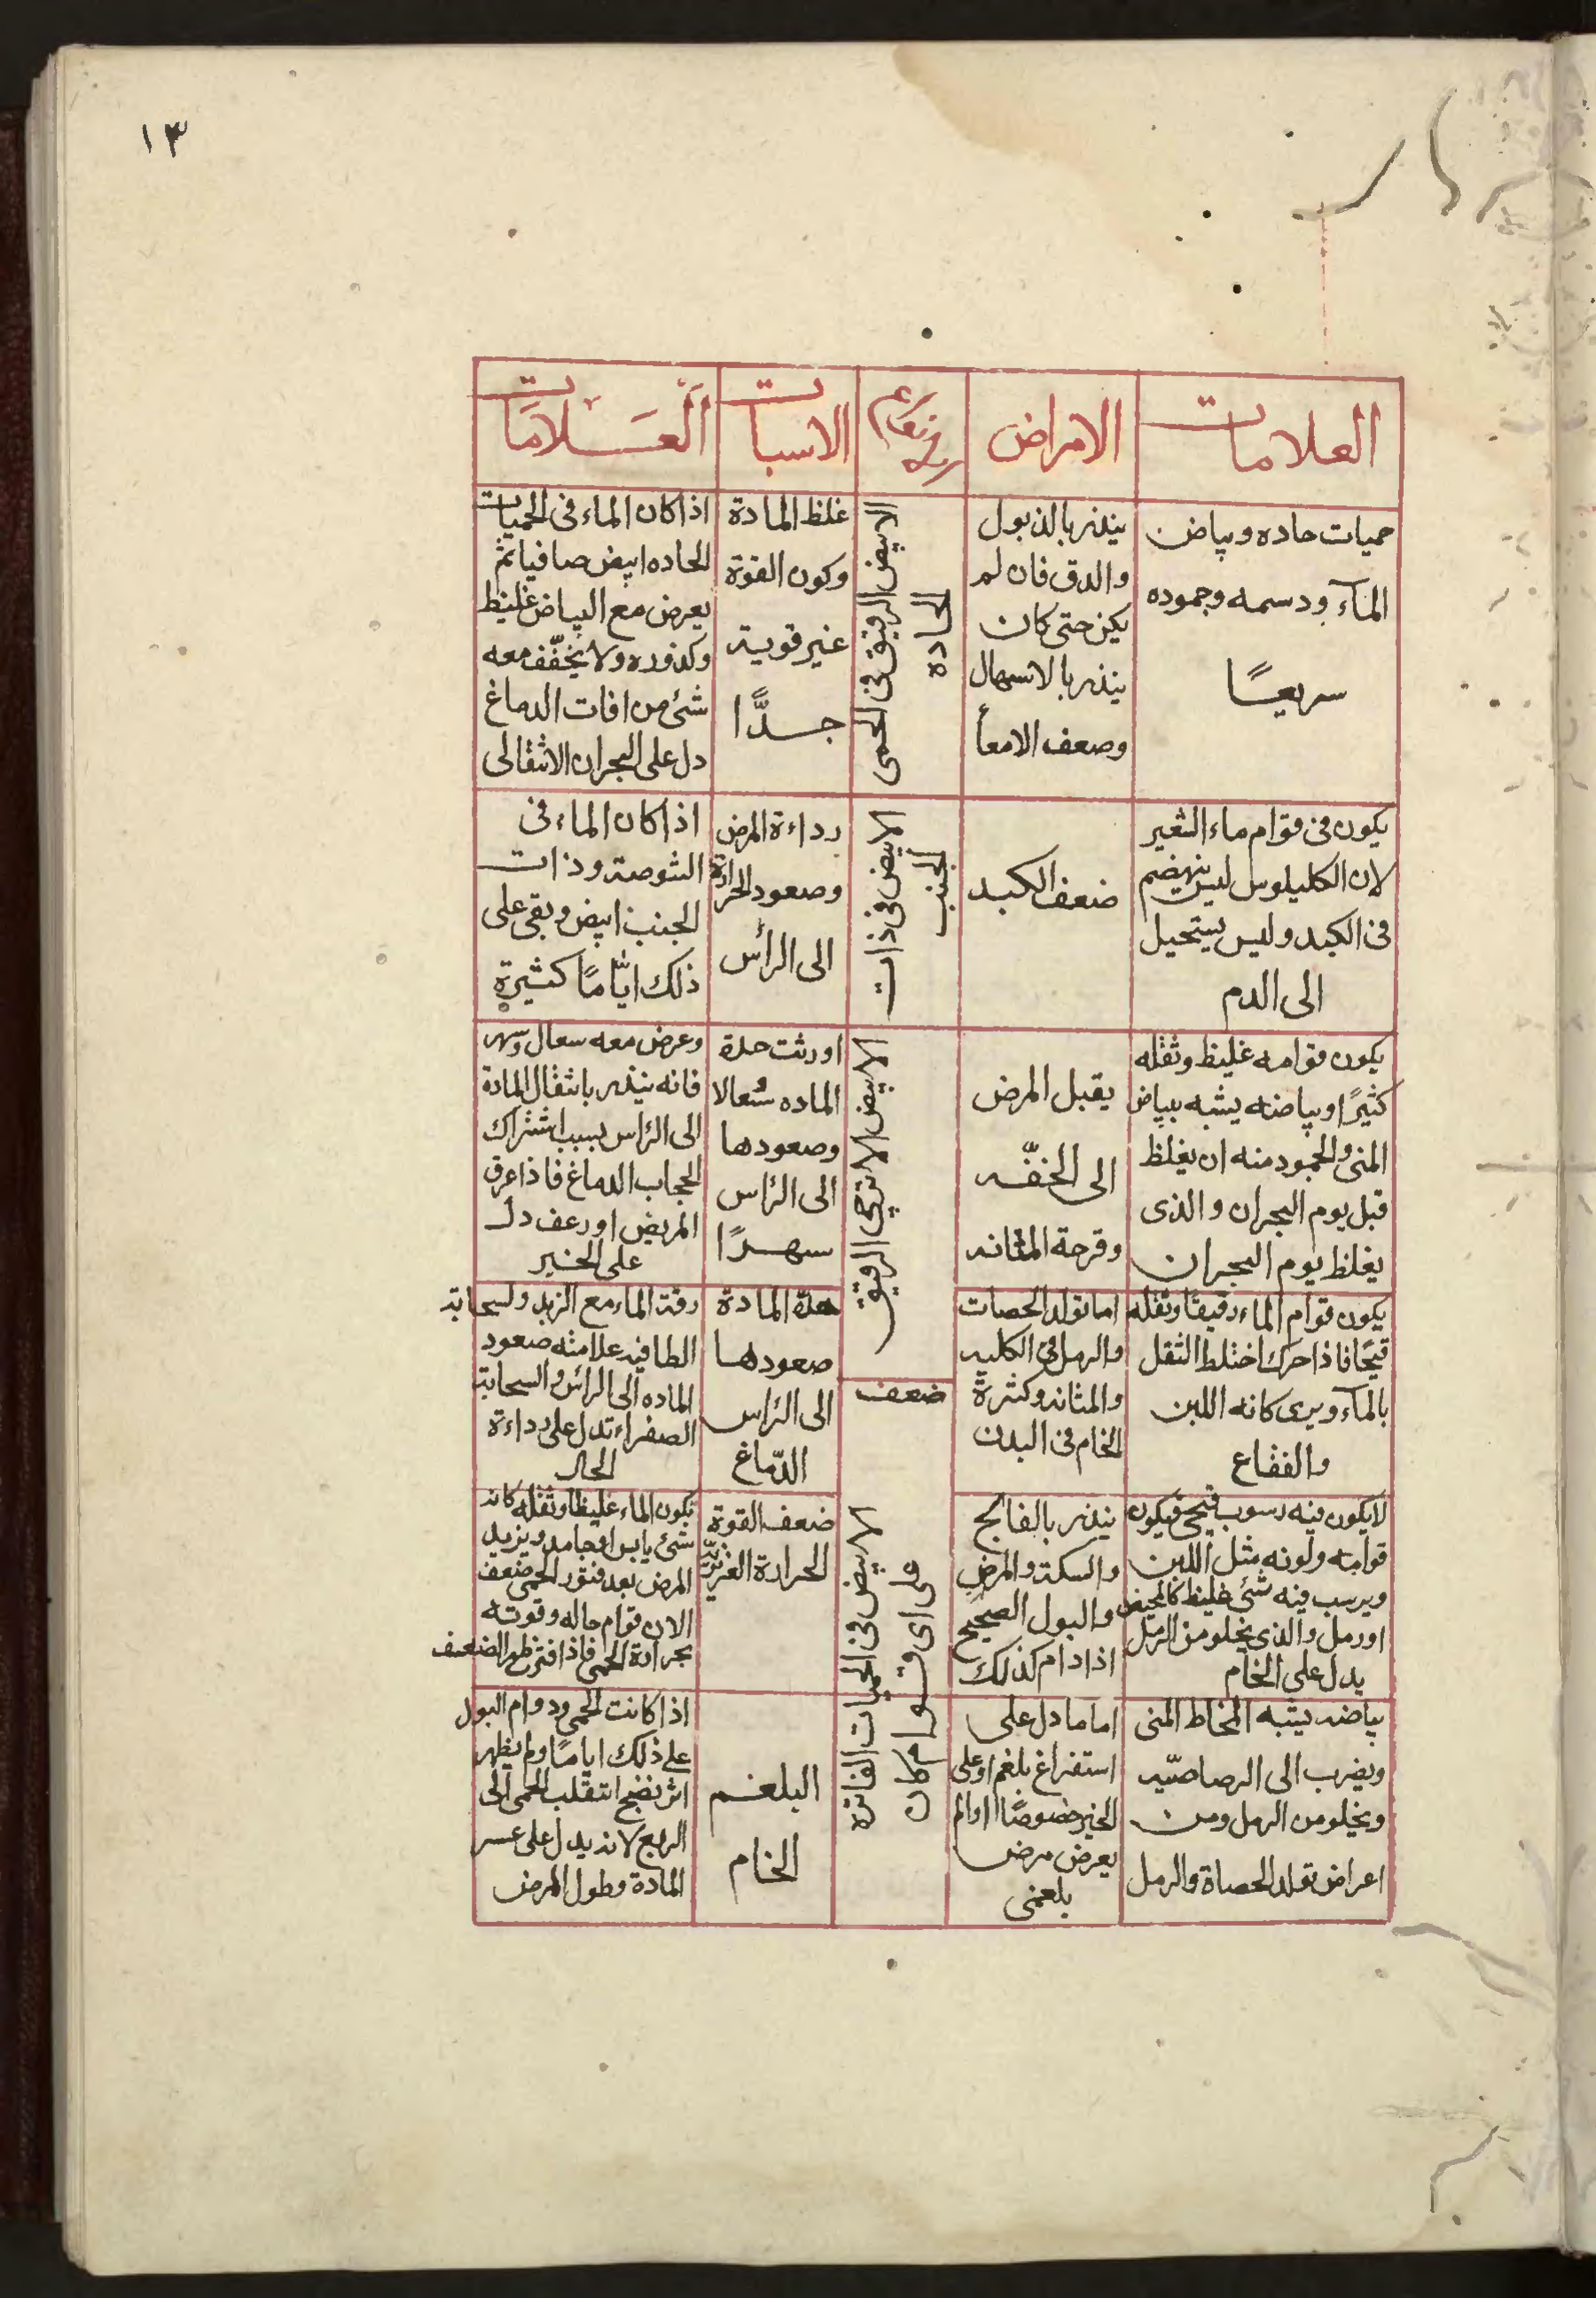 ١٣
العلامات
الامراض
الاسباب
العلامات
حميات حاده وبياض
الماء ودسمه وجموده
سريعًا
ينذر بالذبول
والدق فان لم
يكن حتى كان
ينذر بالاسهال
وضعف الامعأ
الابيض الرقيق فى الحمى
الحاده
غلظ المادة
وكون القوة
غير قوية
جدًّا
اذا كان الماء فى الحميات
الحاده ابيض صافيا ثم
يعرض مع البياض غليظ
وكدوره ولا يخفّف معه
شئ من افات الدماغ
دل على البحران الانتقالى
يكون فى قوام ماء الشعير
لان الكليلوس ليس ينهضم
فى الكبد وليس يستحيل
الى الدم
ضعف الكبد
الابيض فى ذات
الجنب
رداءة المرض
وصعود الحرارة
الى الرأس
اذا كان الماء فى
الشوصة وذات
الجنب ابيض وبقى على
ذلك ايّامًا كثيرة
يكون قوامه غليظ وثقله
كثيرًا وبياضه يشبه ببياض
المنى والجمود منه ان يغلظ
قبل يوم البحران والذى
يغلظ يوم البحران
يقبل المرض
الى الخفّه
وقرحة المثانه
الابيض الاترجى الرقيق
اورثت حدة
الماده سُعالا
وصعودها
الى الرّاس
سهدًا
وعرض معه سعال وسهر
فانه ينذر بانتقال المادة
الى الرّاس بسبب اشتراك
الحجاب الدماغ فاذا عرق
المريض او رعف دل
على الخير
يكون قوام الماء رقيقًا وثقله
قيحًا فاذا حرك اختلط الثقل
بالماء ويرى كانه اللبن
والفقاع
اما تولد الحصات
والرمل فى الكليه
والمثانه وكثرة
الخام فى البدن
ضعف
حدة المادة
صعودها
الى الرّاس
الدّماغ
رقة الماء مع الزبد ولسحابته
الطافيه علامته صعود
الماده الى الرأس والسحابة
الصفراء تدل على رداءة
الحال
لا يكون فيه رسوب قيحى فيكون
قوامه ولونه مثل اللبن
ويرسب فيه شئ غليظ كالمخيض
او رمل والذى يخلو من الرمل
يدل على الخام
ينذر بالفالج
والسكتة والمرض
والبول الصحيح
اذا دام كذلك
الابيض فى الحميات الفاتره
على اى قوام كان
ضعف القوة
الحرارة الغريزيّة
يكون الماء غليظا وثقله كانه
شئ يابس او جامد ويزيد
المرض بعد فتور الحمى ضعف
الان قوام حاله وقوته
بحرارة الحمى فاذا فتر ظهر الضعف
بياضه يشبه المخاط المنى
ويضرب الى الرصاصيّه
ويخلو من الرمل ومن
اعراض تولد الحصاة والرمل
اما ما دل على
استفراغ بلغم او على
الخير خصوصًا اوالم
يعرض مرض
بلغمى
البلغم
الخام
اذا كانت الحمى ودوام البول
على ذلك ايامًا ولم يظهر
اثر نضج انتقلب الحمى الى
الربع لانه يدل على عسر
المادة وطول المرض